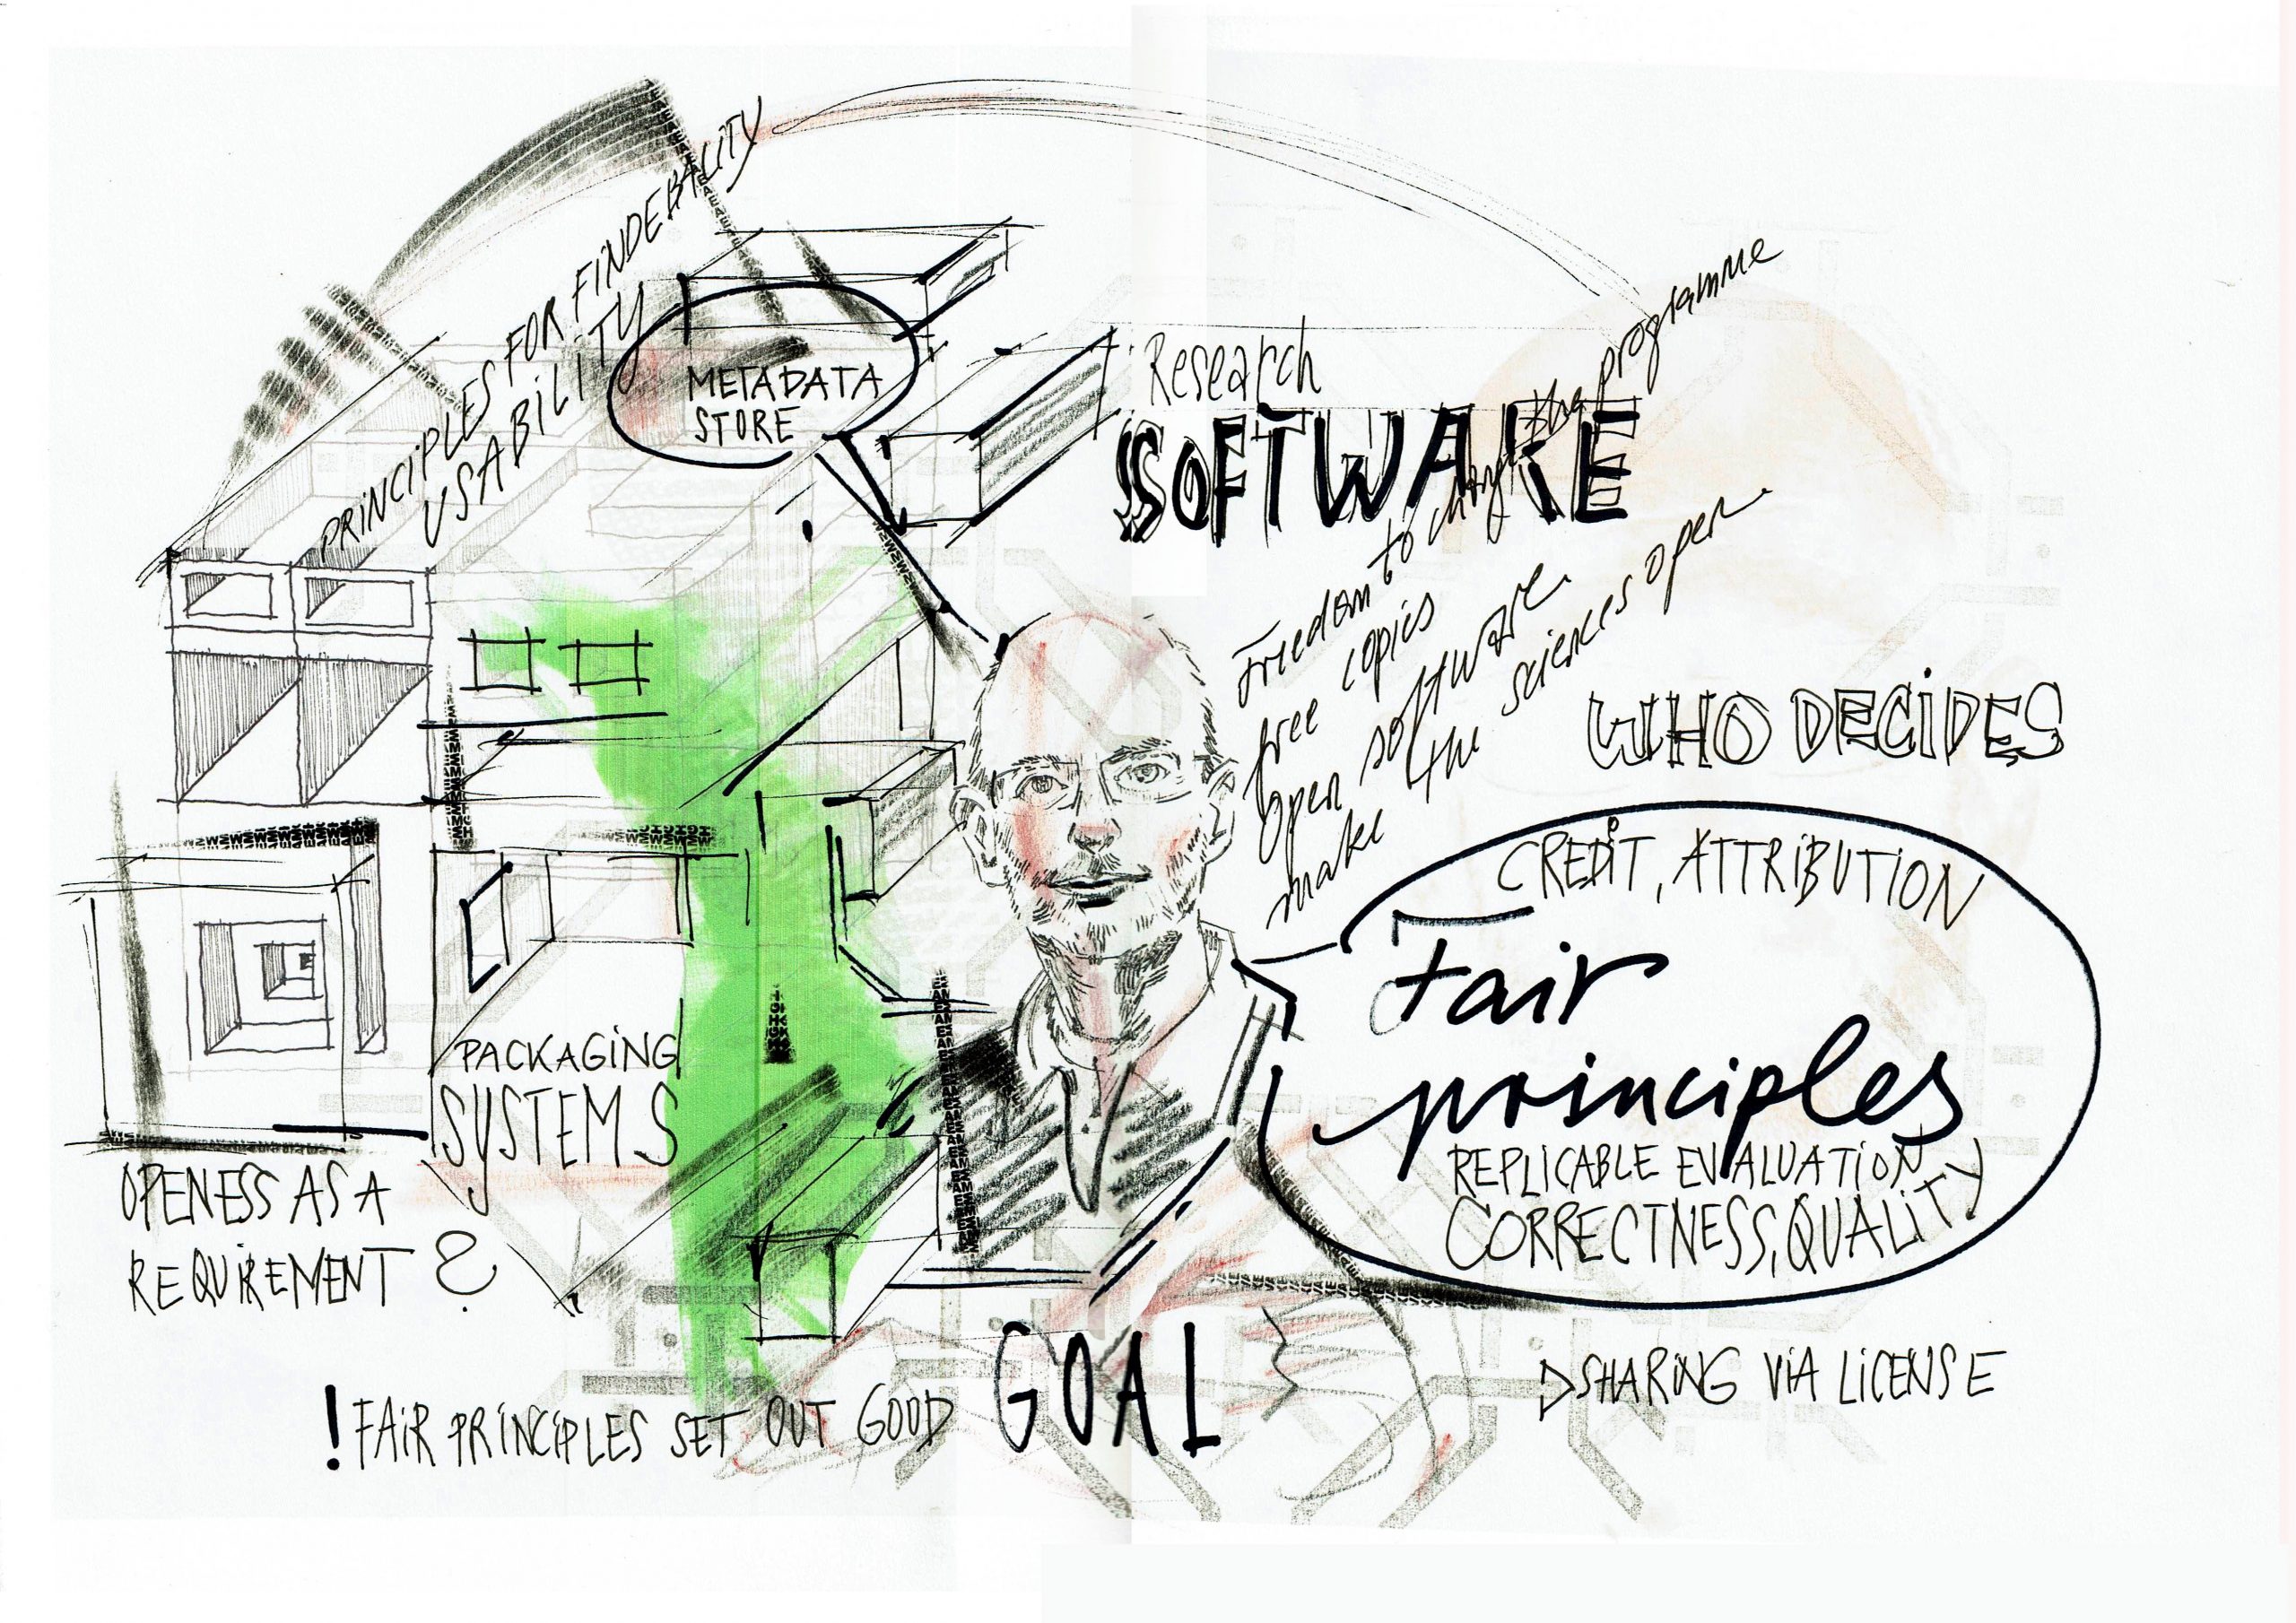 PRINCIPLES FOR FINDEBALITY
USABILITY
METADATA
STORE
Research
SOFTWARE
Freedom to change the programme
free copies
Open software.
make the sciences open
WHO DECIDES
CREDIT, ATTRIBUTION
Fair
principles
REPLICABLE EVALUATION
CORRECTNESS, QUALITY
PACKAGING
SYSTEMS
OPENESS AS A
REQUIREMENT ?
! FAIR PRINCIPLES SET OUT GOOD GOAL
SHARING VIA LICENSE